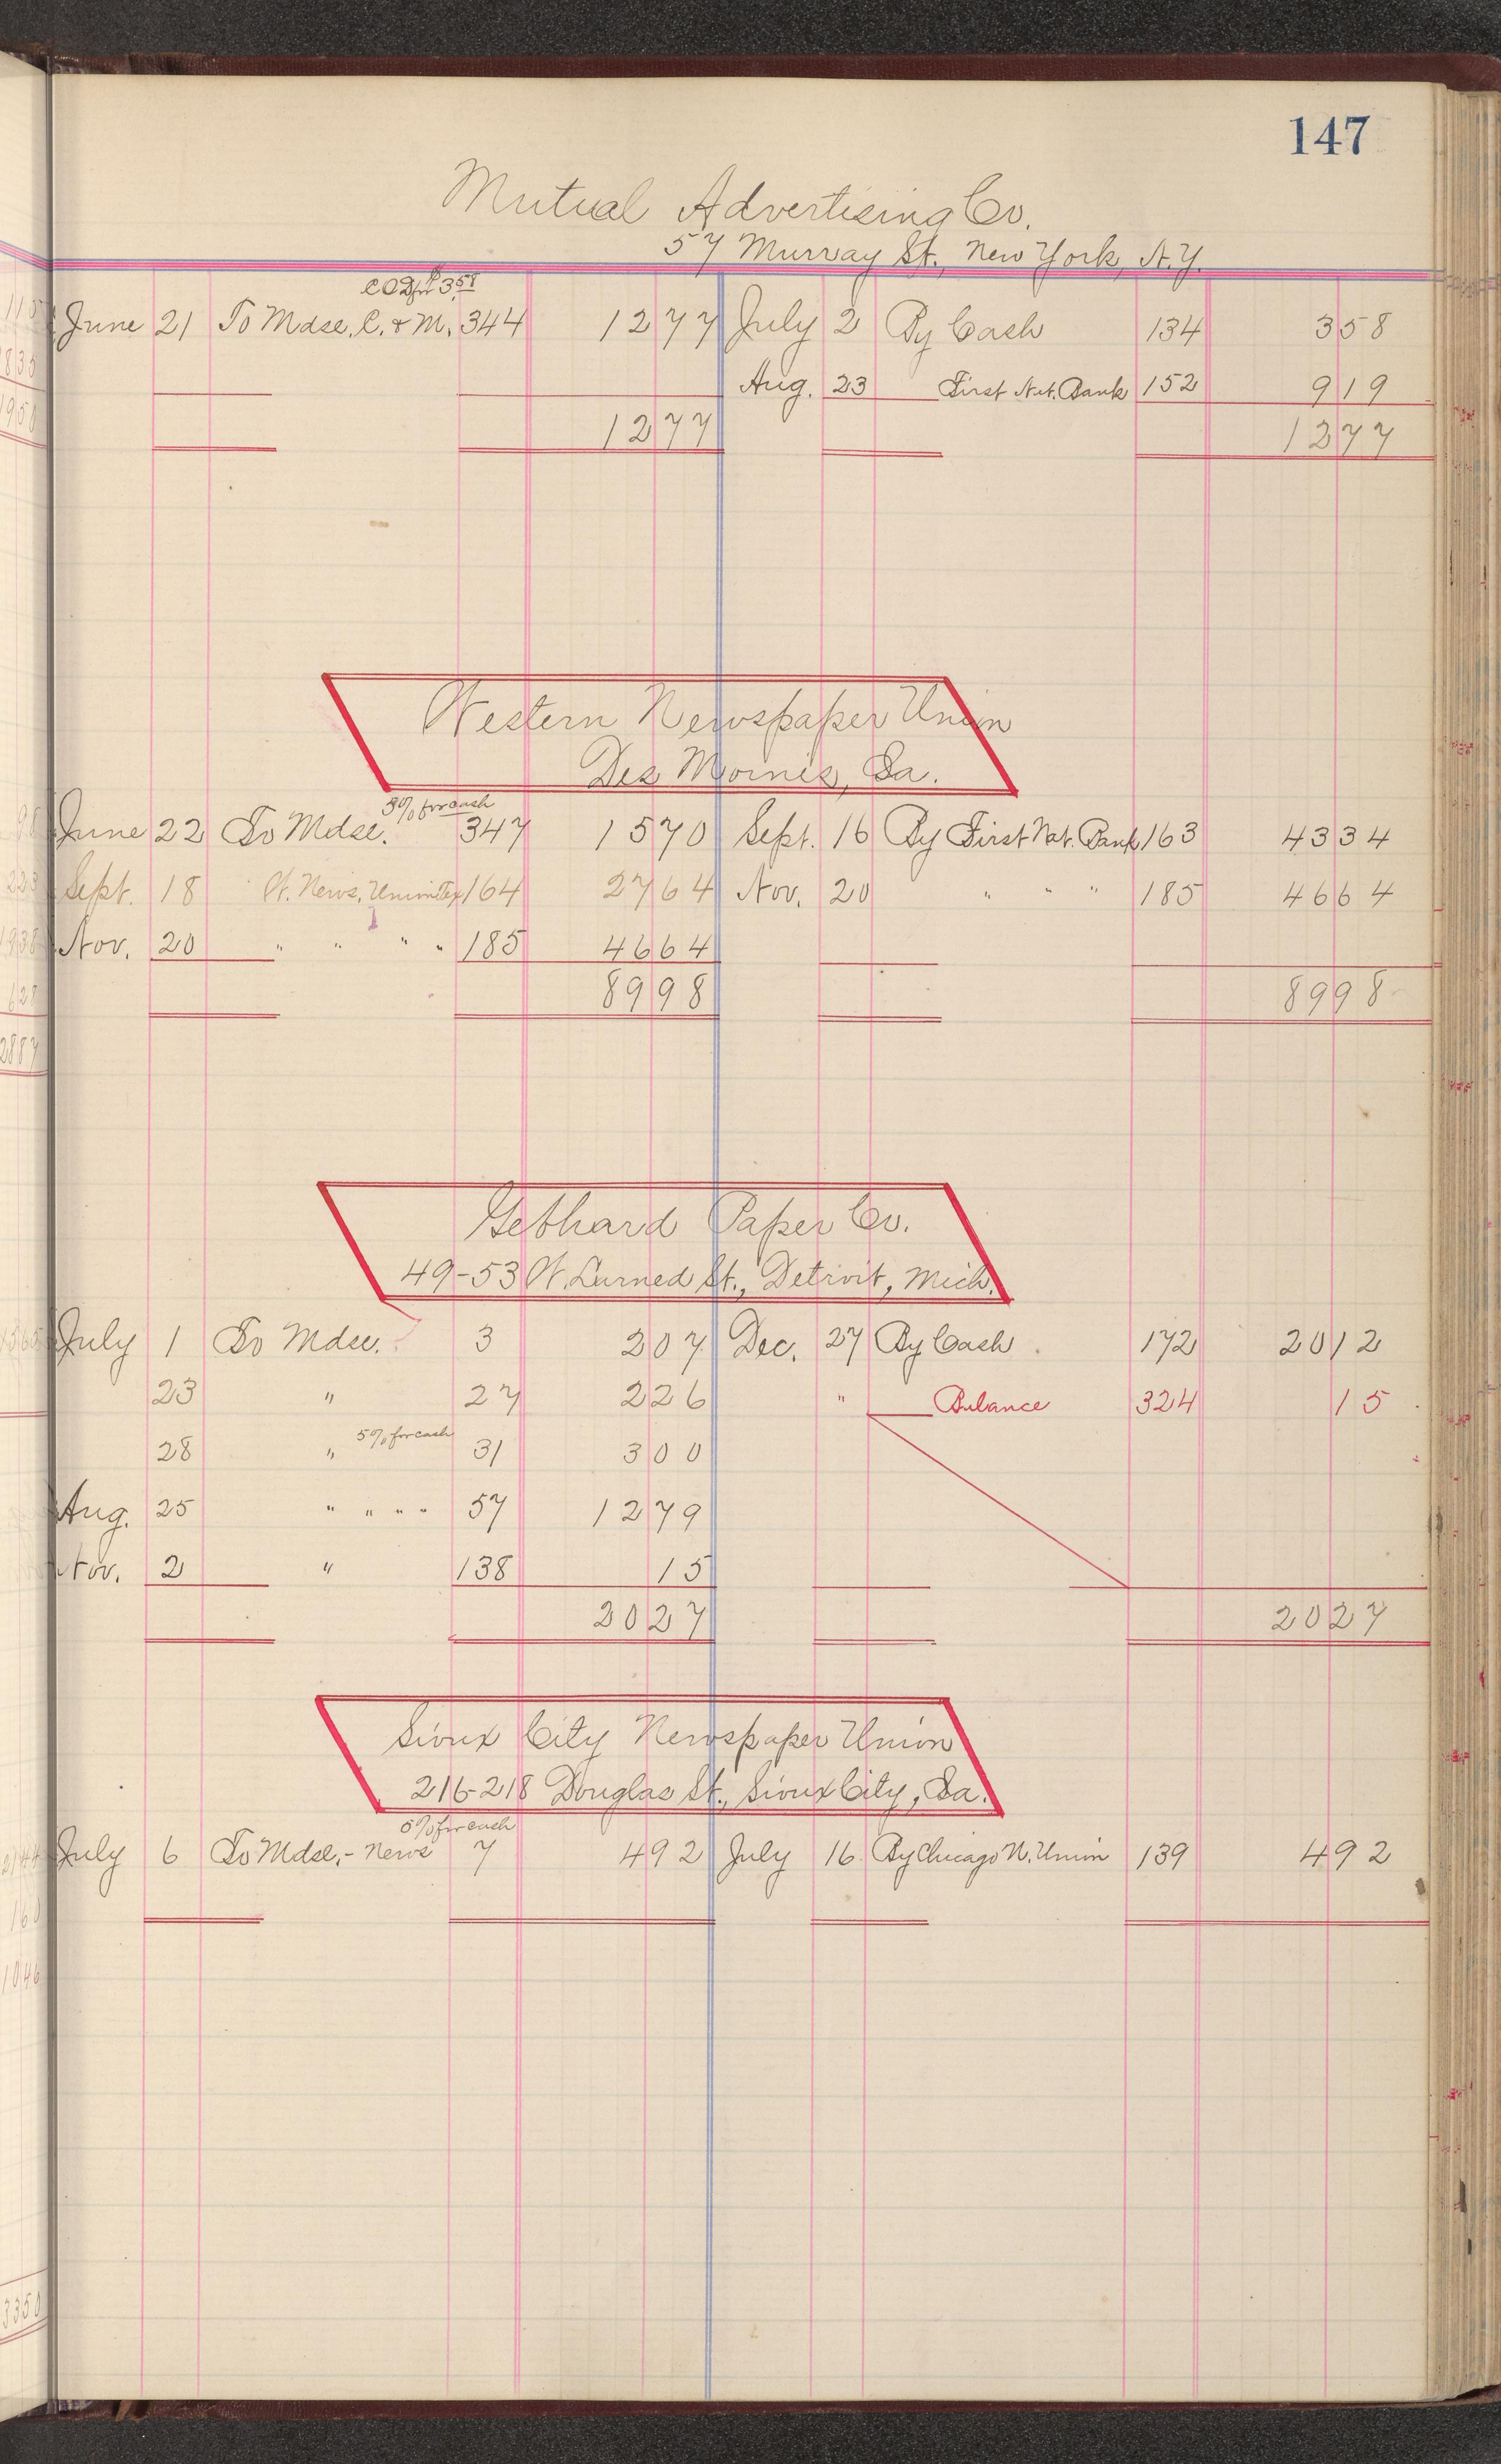 147
Mutual Advertising Co.
57 Murray St., New York, N.Y.
C.O.D. for $3.58
June 21 To Mdse. C. & M. 344 12 77 July 2 By Cash 134 3 58
Aug. 23 First Nat. Bank 152 9 19
12 77 12 77
Western Newspaper Union
Des Moines, Ia.
3% for cash
June 22 To Mdse. 347 15 70 Sept. 16 By First Nat. Bank 163 43 34
Sept. 18 W. News. Union Tex 164 27 64 Nov. 20 " " " 185 46 64
Nov. 20 " " " " 185 46 64
89 98 89 98
Gebhard Paper Co.
49-53 W. Larned St., Detroit, Mich.
July 1 To Mdse. 3 2 07 Dec. 27 By Cash 172 20 12
23 " 27 2 26 " Balance 324 15
5% for cash
28 " 31 3 00
Aug. 25 " " " " 57 12 79
Nov. 2 " 138 15
20 27 20 27
Sioux City Newspaper Union
216-218 Douglas St., Sioux City, Ia.
5% for cash
July 6 To Mdse. - News 7 4 92 July 16 By Chicago N. Union 139 4 92